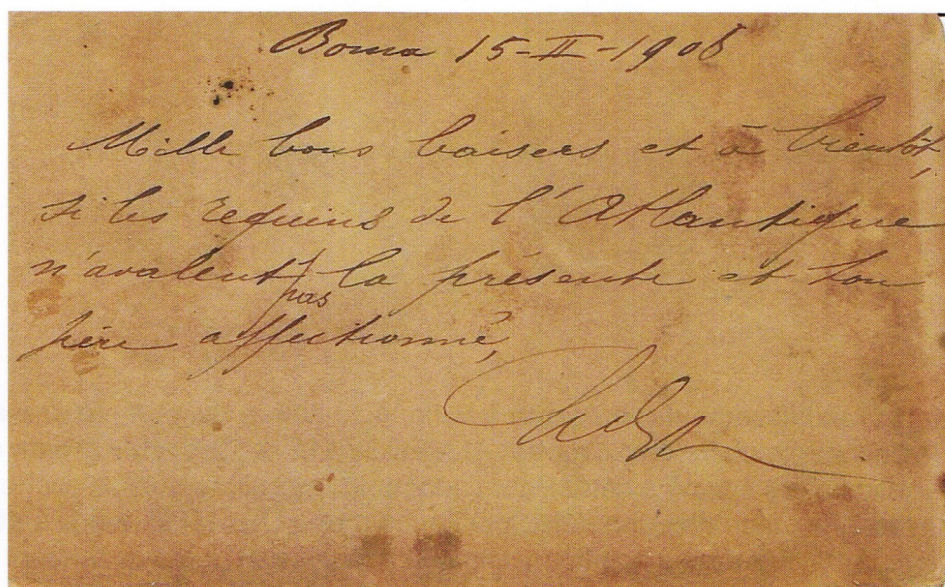 Boma 15-II-1908
Mille bons baisers et à bientôt,
si les requins de l'Atlantique
n'avalent pas la présente et ton
père affectionné,